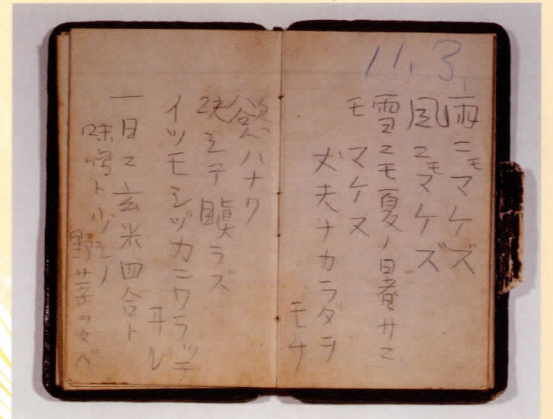 11.3.
雨ニモマケズ
風ニモマケズ
雪ニモ夏ノ暑サニ
モ マケヌ
丈夫ナカラダヲ
モチ
欲ハナク
決シテ瞋ラズ
イツモシヅカニワラッテ
ヰル
一日ニ玄米四合ト
味噌ト少シノ
野菜ヲタベ